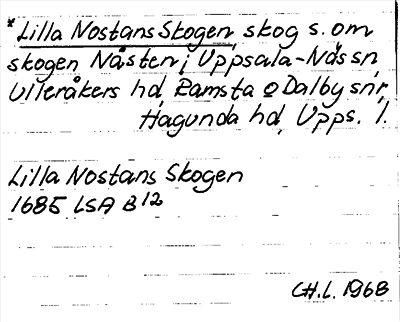 *Lilla Nostans Skogen, skog s. om
skogen Nåsten i Uppsala-Näs sn,
Ulleråkers hd, Ramsta o Dalby snr,
Hagunda hd, Upps. l.
Lilla Nostans Skogen
1685 LSA B 12
C.H.L. 1968